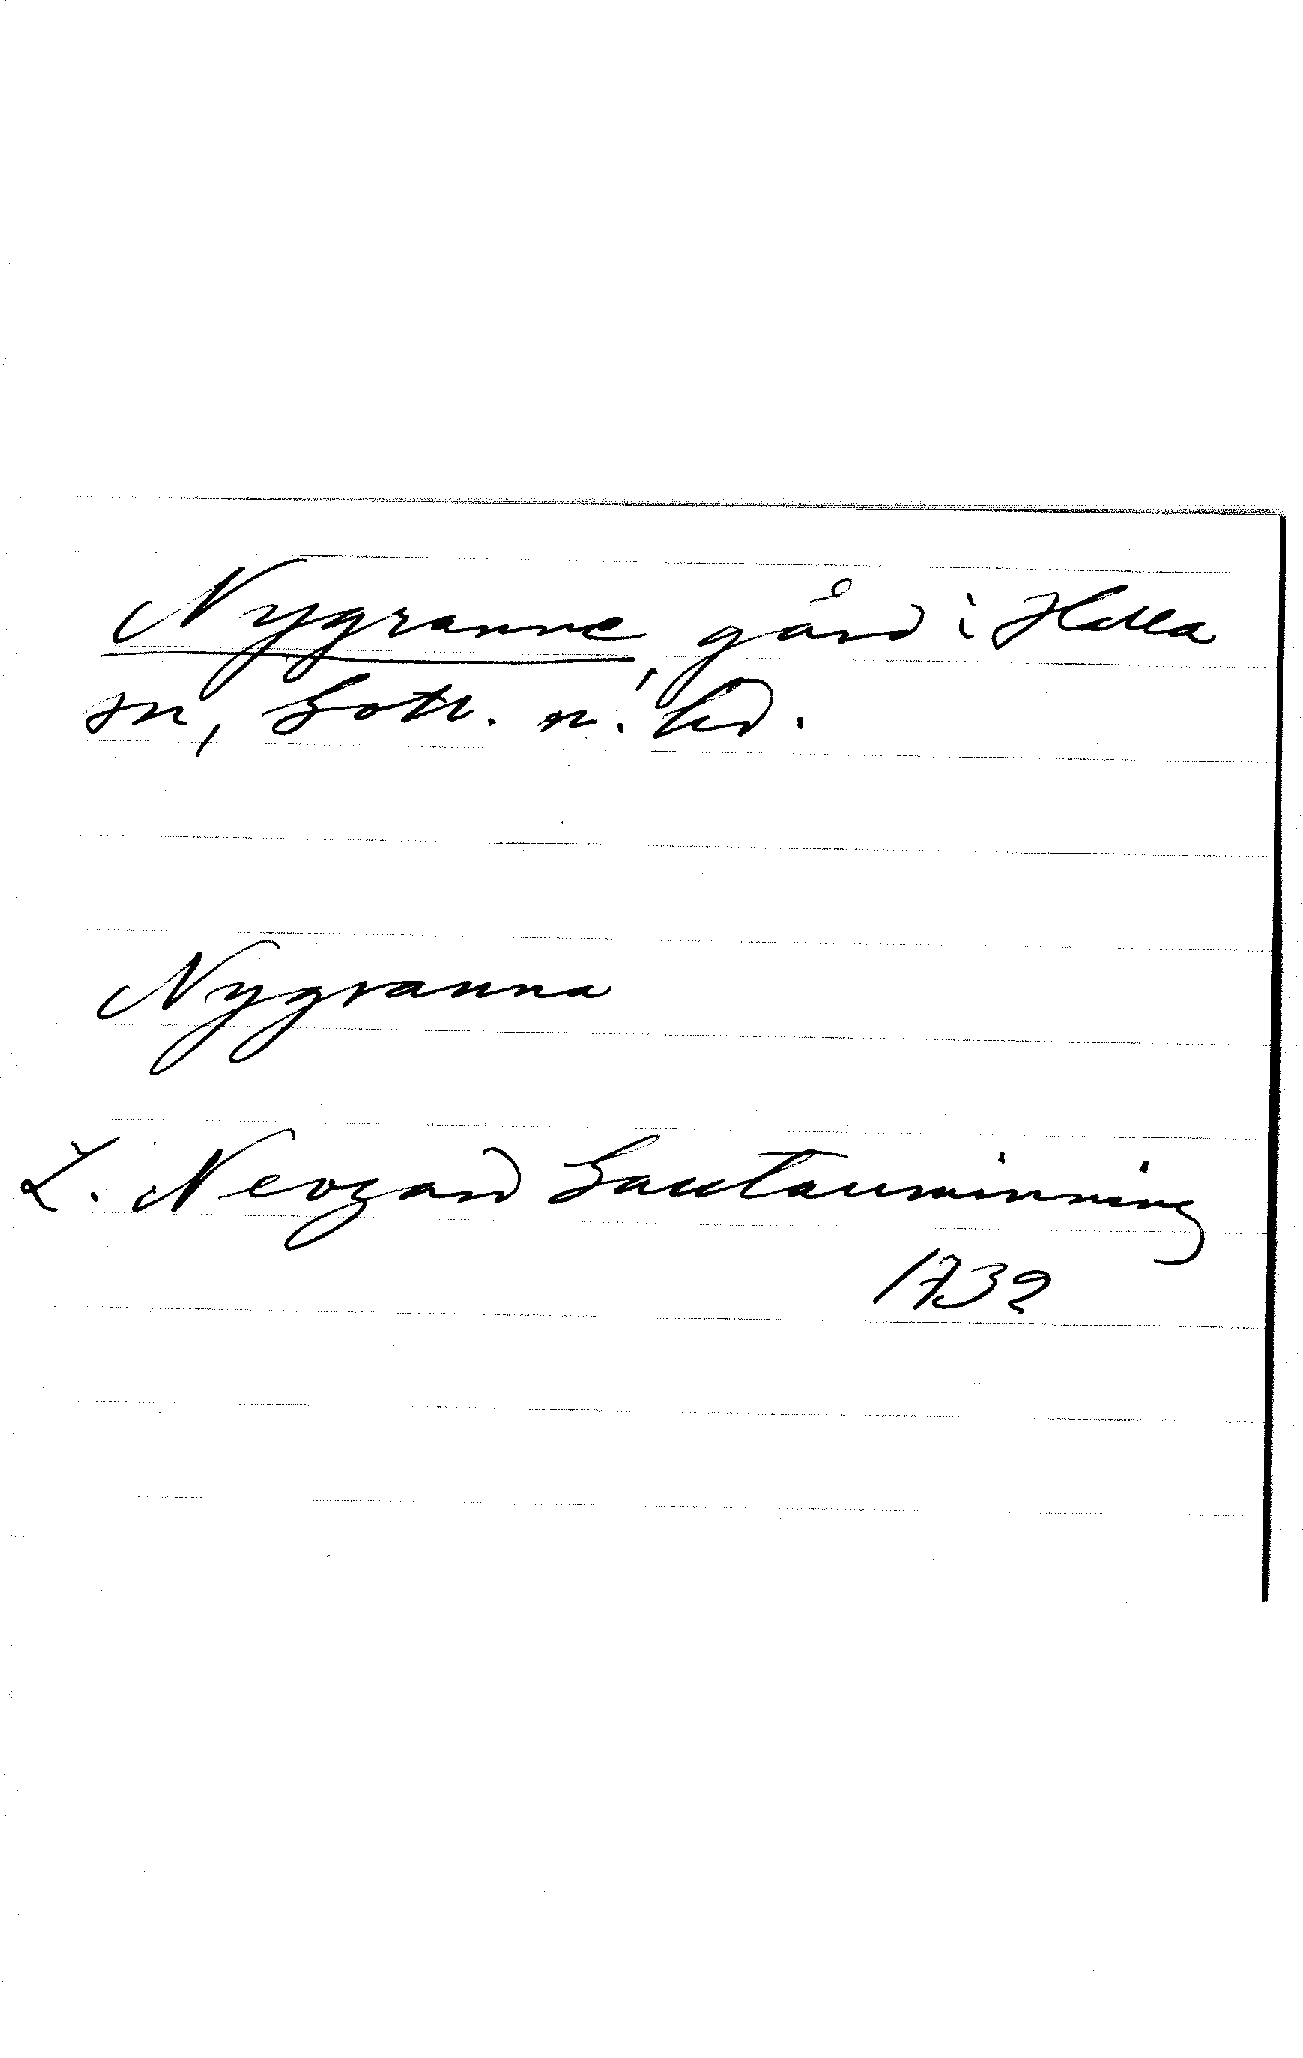 Nygranne, gård i Halla
sn, Gotl. n. hd.
Nygranna
L. Neogard Gautauminning
1732